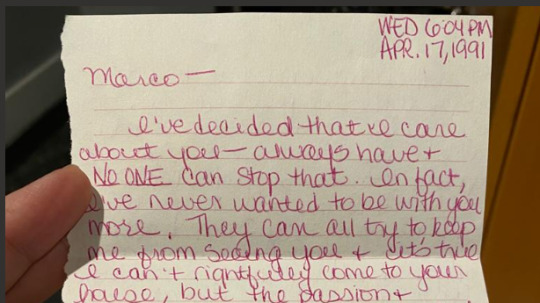 WED 6:04 PM
APR. 17, 1991
Marco —
I've decided that I care
about you — always have +
NO ONE can stop that. In fact,
I've never wanted to be with you
more. They can all try to keep
me from seeing you + it's true
I can't rightfully come to your
house, but the passion +